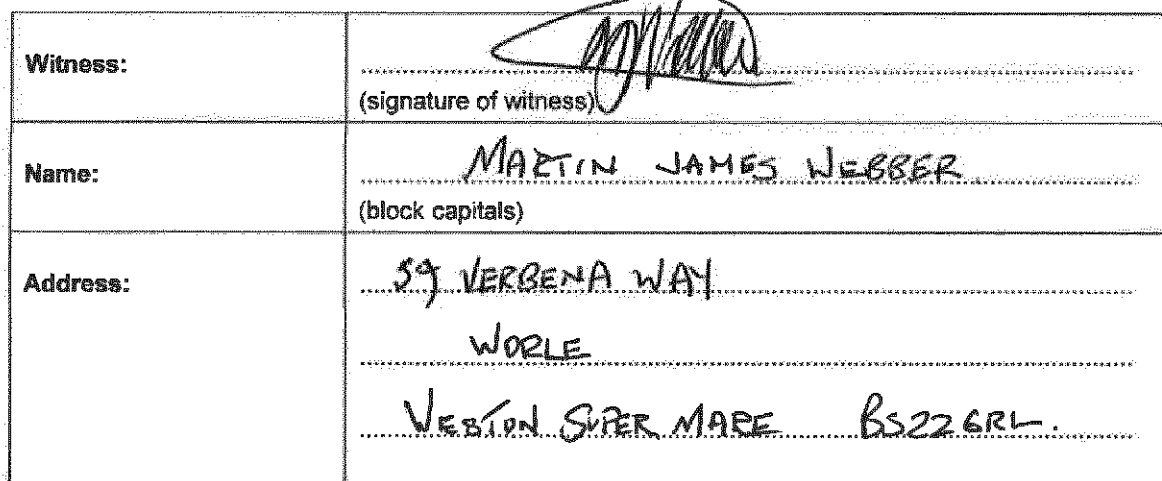 Witness:
(signature of witness)
Name: MARTIN JAMES WEBBER
(block capitals)
Address: 59 VERBENA WAY
WORLE
WESTON SUPER MARE BS22 6RL.